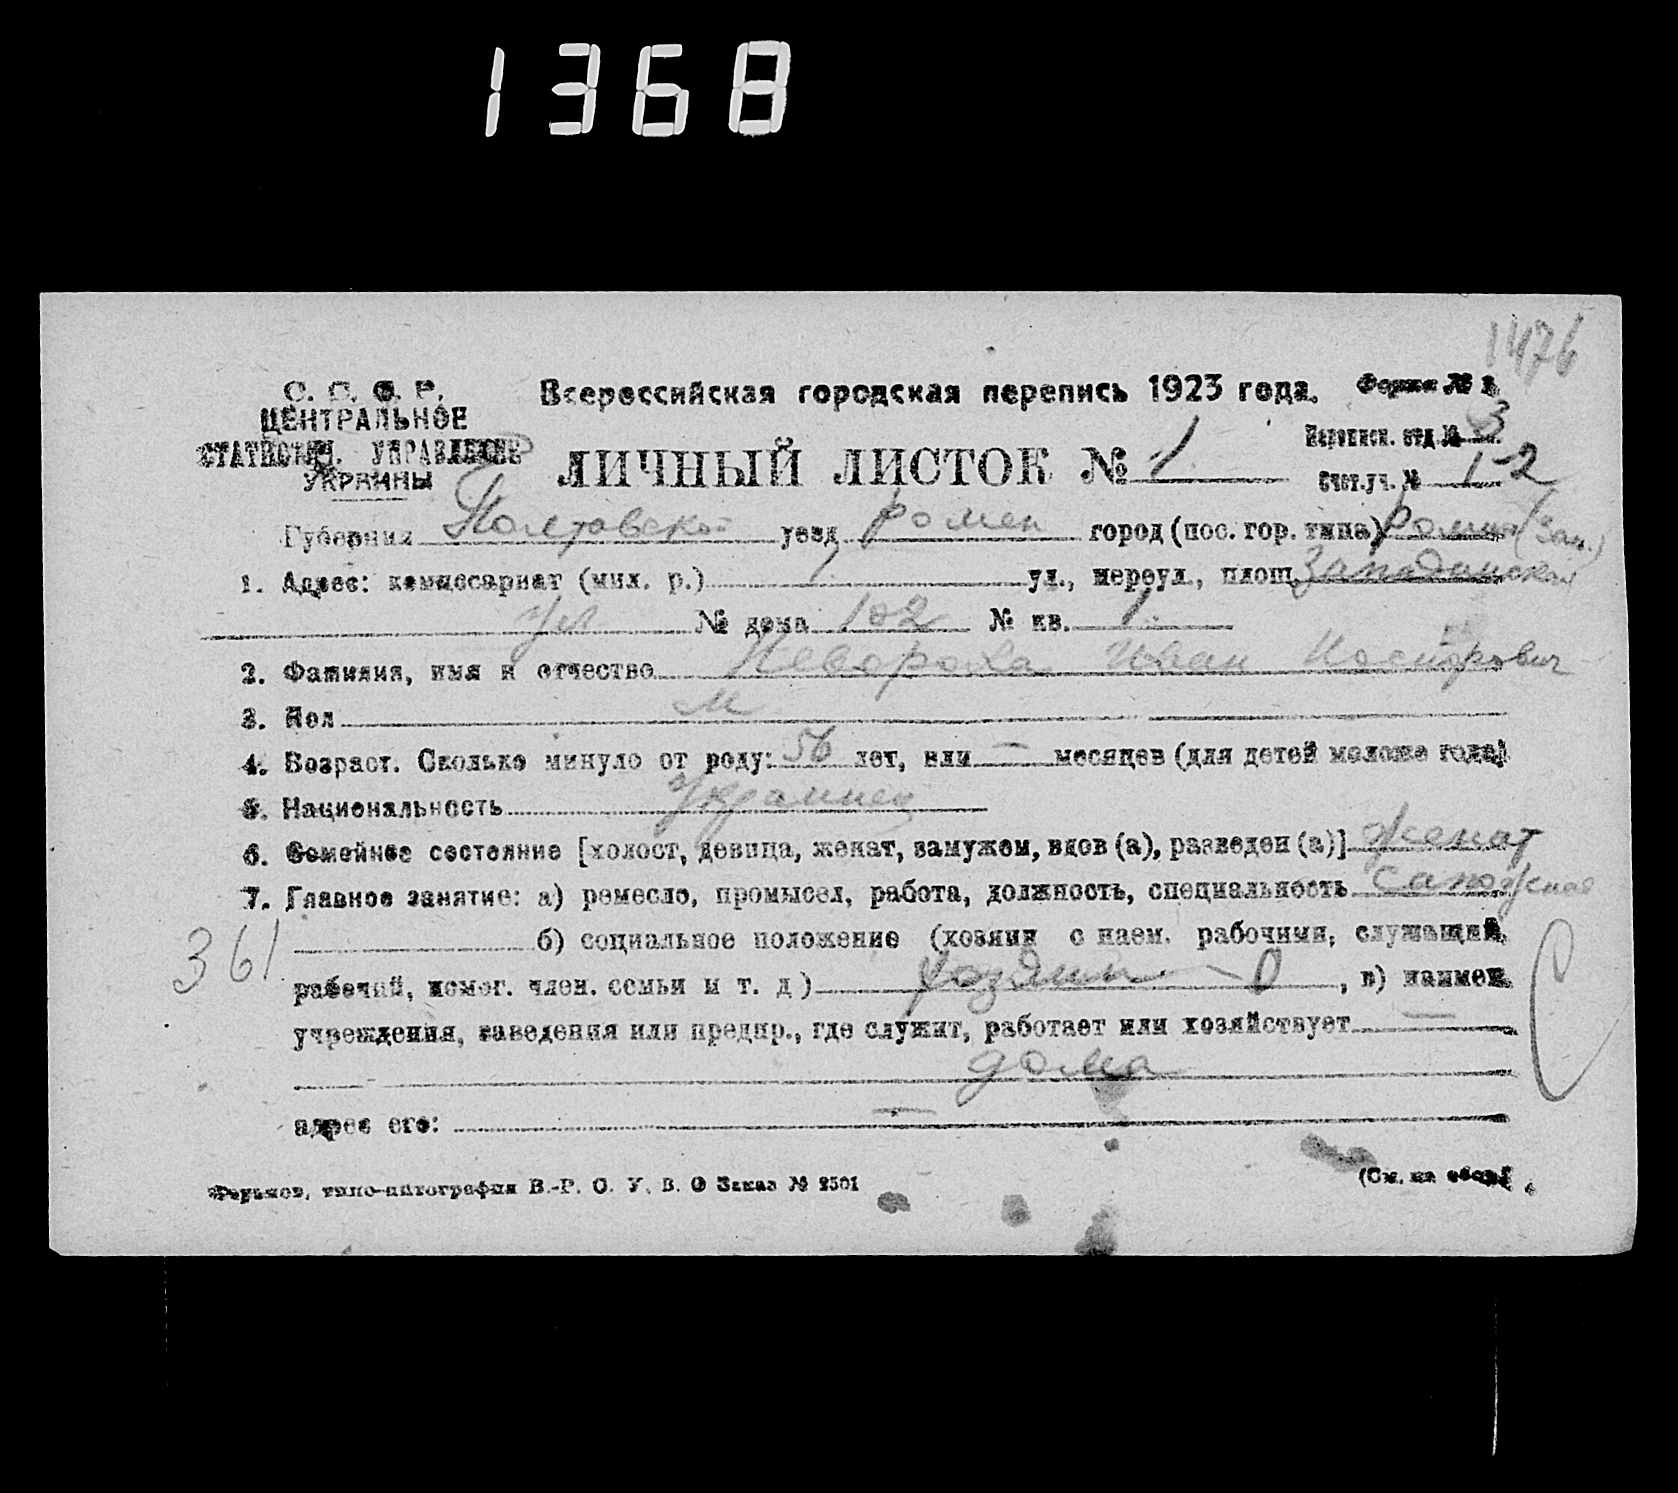 1368
1476
С. С. С. Р.
ЦЕНТРАЛЬНОЕ
СТАТИСТИЧ. УПРАВЛЕНИЕ
УКРАИНЫ
Всероссийская городская перепись 1923 года.
Форма № 1.
ЛИЧНЫЙ ЛИСТОК № 1
Переписн. отд. № 3
Счет. уч. № 1-2
Губерния Полтавской уезд Ромен город (пос. гор. типа)
1. Адрес: комиссариат (мил. р.) 1 ул., переул., площ.
ул № дома 102 № кв. 1.
2. Фамилия, имя и отчество Невороха Иван
3. Пол м
4. Возраст. Сколько минуло от роду: 56 лет, или — месяцев (для детей моложе года)
5. Национальность Украинец
6. Семейное состояние [холост, девица, женат, замужем, вдов (а), разведен (а)] женат
7. Главное занятие: а) ремесло, промысел, работа, должность, специальность
361 б) социальное положение (хозяин с наем. рабочими, служащий,
рабочий, помог. член. семьи и т. д ) хозяин — 0, в) наимен.
учреждения, заведения или предпр., где служит, работает или хозяйствует —
дома
адрес его: —
Харьков, типо-литография В.-Р. О. У. В. О Заказ № 2501
(См. на обор.)